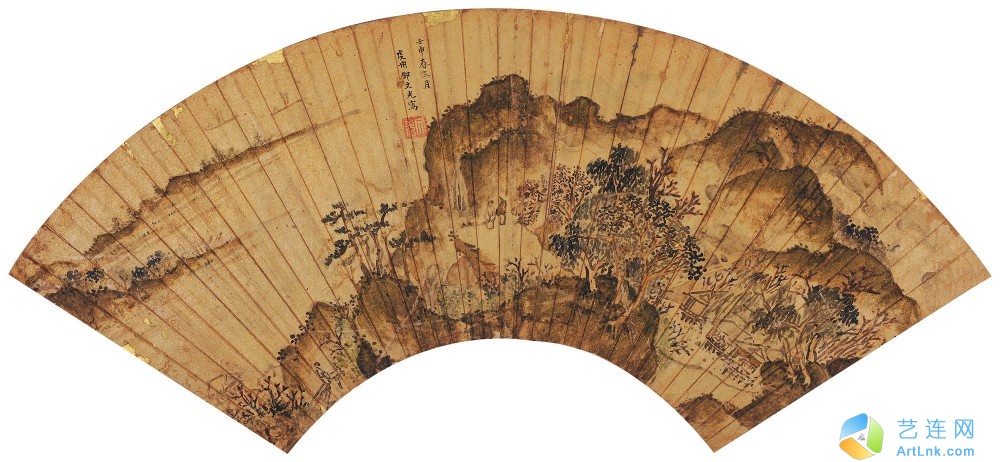 壬申春三月
虞山邵文光寫
艺连网
ArtLnk.com